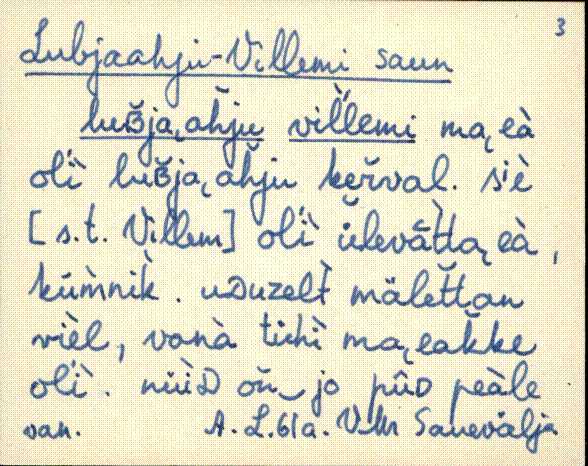 3
Lubjaahju-Villemi saun
luʙ̆ja‿ah̆ju vil̆'l'emi ma‿eà
ol'ì luʙ̆ja‿ah̆ju ker̆val. s'iè
[s.t. Villem] ol'ì ülevàt̆ta‿eà,
kùm̀nik̀. uᴅuzelt̀ mälet̆tan
vièl, vanà tichì ma‿eak̆ke
ol'ì. nüìᴅ on‿jo pûᴅ peàle
van. A. L. 61a. VMr Sauevälja